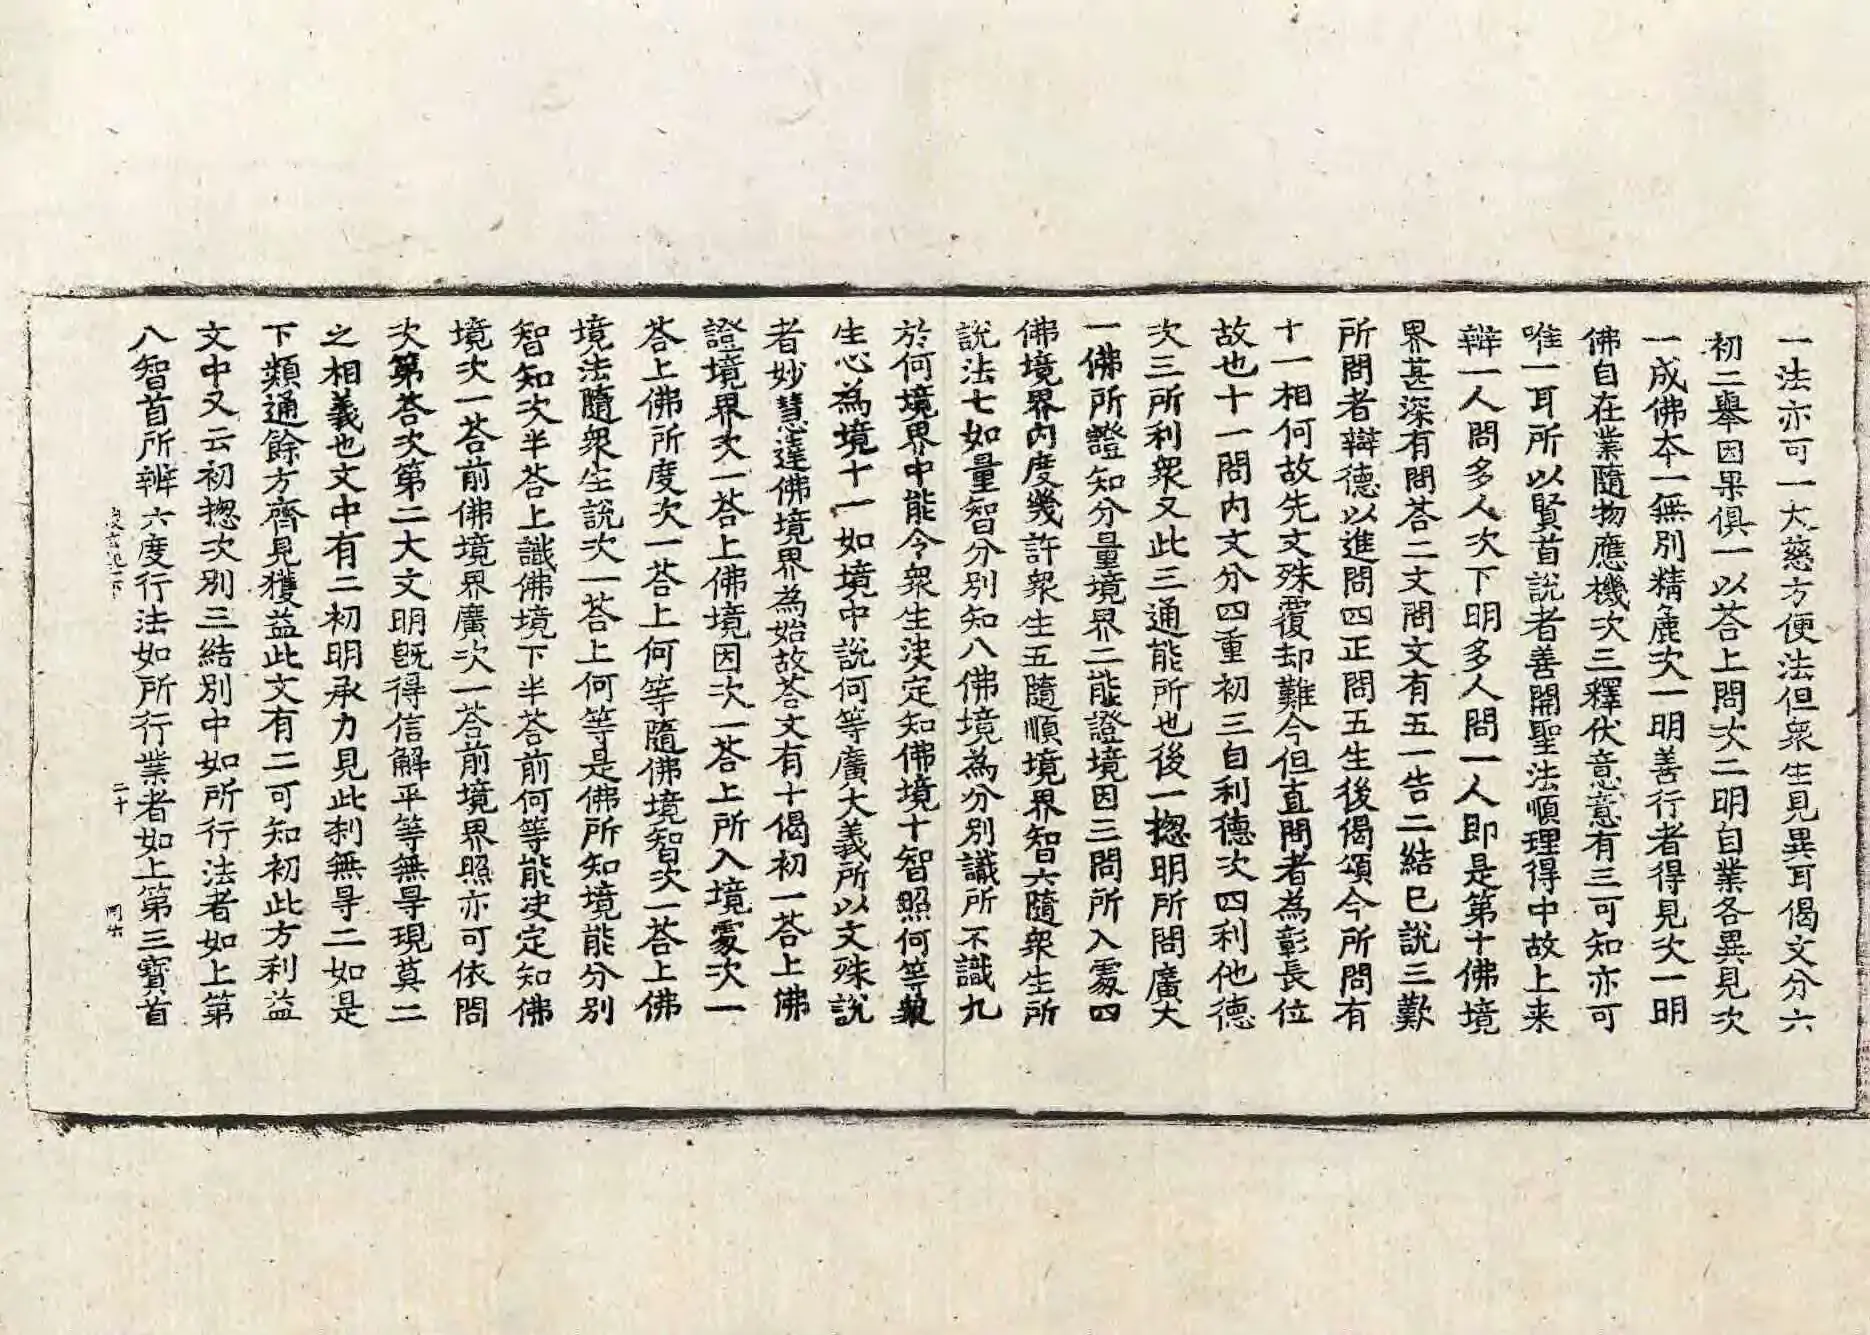 一法亦可一大慈方便法但衆生見異耳偈文分六
初二舉因果俱一以荅上問次二明自業各異見次
一成佛夲一無別精麁次一明善行者得見次一明
佛自在業隨物應機次三釋伏意意有三可知亦可
唯一耳所以賢首說者善開聖法順理得中故上来
辯一人問多人次下明多人問一人即是第十佛境
界甚深有問荅二文問文有五一告二結已說三歎
所問者辯德以進問四正問五生後偈頌今所問有
十一相何故先文殊覆却難今但直問者為彰長位
故也十一問内文分四重初三自利德次四利他德
次三所利衆又此三通能所也後一揔明所問廣大
一佛所證知分量境界二能證境因三問所入䖏四
佛境界内度幾許衆生五隨順境界智六隨衆生所
說法七如量智分別知八佛境為分別識所不識九
於何境界中能令衆生決定知佛境十智照何等
生心為境十一如境中說何等廣大義所以文殊說
者妙慧達佛境界為始故荅文有十偈初一荅上佛
證境界次一荅上佛境因次一荅上所入境䖏次一
荅上佛所度次一荅上何等隨佛境智次一荅上佛
境法隨衆生說次一荅上何等是佛所知境能分別
智知次半荅上識佛境下半荅前何等能决定知佛
境次一荅前佛境界廣次一荅前境界照亦可依問
次第荅次第二大文明旣得信解平等無㝵現莫二
之相義也文中有二初明承力見此刹無㝵二如是
下類通餘方齊見獲益此文有二可知初此方利益
文中又云初揔次別三結別中如所行法者如上第
八智首所辨六度行法如所行業者如上第三寳首
二十